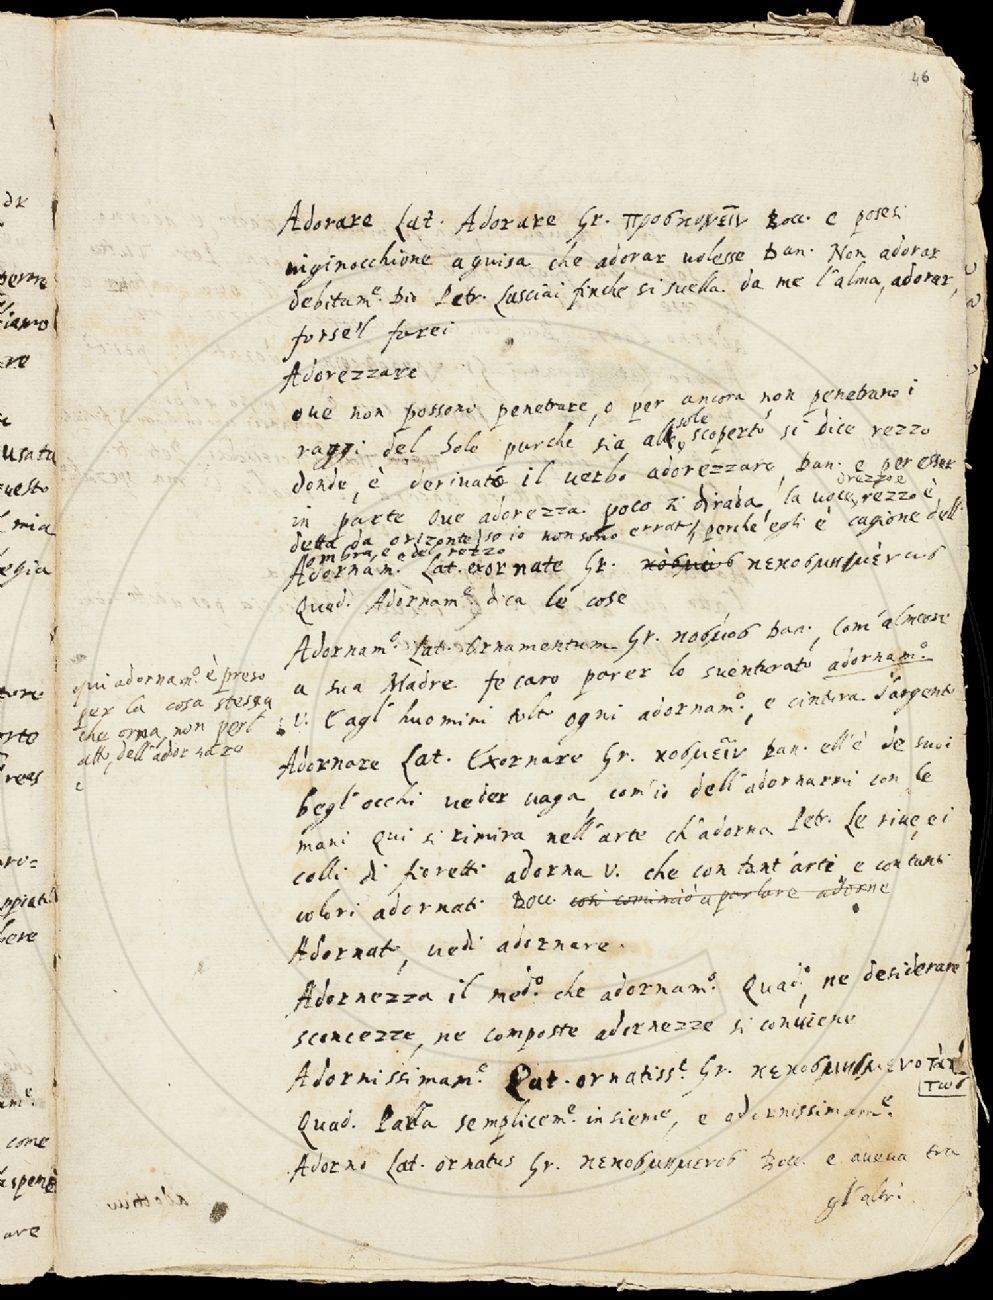 46
Adorare Lat. Adorare Gr. προσκυνεῖν Bocc. e posesi
niginocchione a guisa che adorar volesse Dan. Non adorar
debitam.e Dio Petr. Lasciai finche si suella da me l'alma, adorar,
forse'l farei
Adorezzare
oue non possono penetrare, o per ancora non penetrano i
raggi del Sole purche sia allo scoperto si dice rezzo
sole
donde è deriuato il uerbo adorezzare, Dan. e per esser
in parte oue adorezza poco si dirada, la uoce, rezzo è
orezzo e
detta da orizonte, so io non sono errato, perche egli è cagione dell'
ombra, e del rezzo
Adornam.e Lat. exornate Gr. κοσμίως κεκοσμημένως
Quad. Adornam.e dica le cose
Adornam.o Lat. Ornamentum Gr. κοσμος Dan., Com' almeone
a sua Madre fe caro parer lo suenturato adornam.o
V. E agl' huomini tolto ogni adornam.o, e cintura d'argento
qui adornam.o è preso
per la cosa stessa
che orna, non perl'
atto, dell'adornare
Adornare Lat. Exornare Gr. κοσμεῖν Dan. ell'è de suoi
begl'occhi ueder uaga, com'io dell'adornarmi con le
mani Qui si rimira nell'arte ch'adorna Petr. Le riue, ei
colli di fioretti adorna V. che con tant'arte e con tanti
colori adornati Bocc. così cominciò a parlare adorne
Adornato, uedi adornare.
Adornezza il med.o che adornam.o Quad. ne desiderare
sconcezze, ne composte adornezze si conuiene
Adornissimam.e Lat. ornatiss.e Gr. κεκοσμημενοτάτ
τως
Quad. Parla semplicem.e insieme, e adornissimam.e
Adorno Lat. ornatus Gr. κεκοσμημενος Bocc. e aueua tra
gl'altri